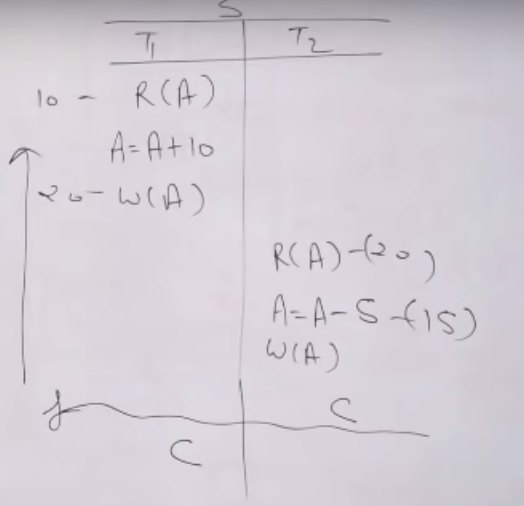 S
T1 T2
10 - R(A)
A=A+10
20 - W(A)
R(A) -(20)
A=A-5 -(15)
W(A)
C
C